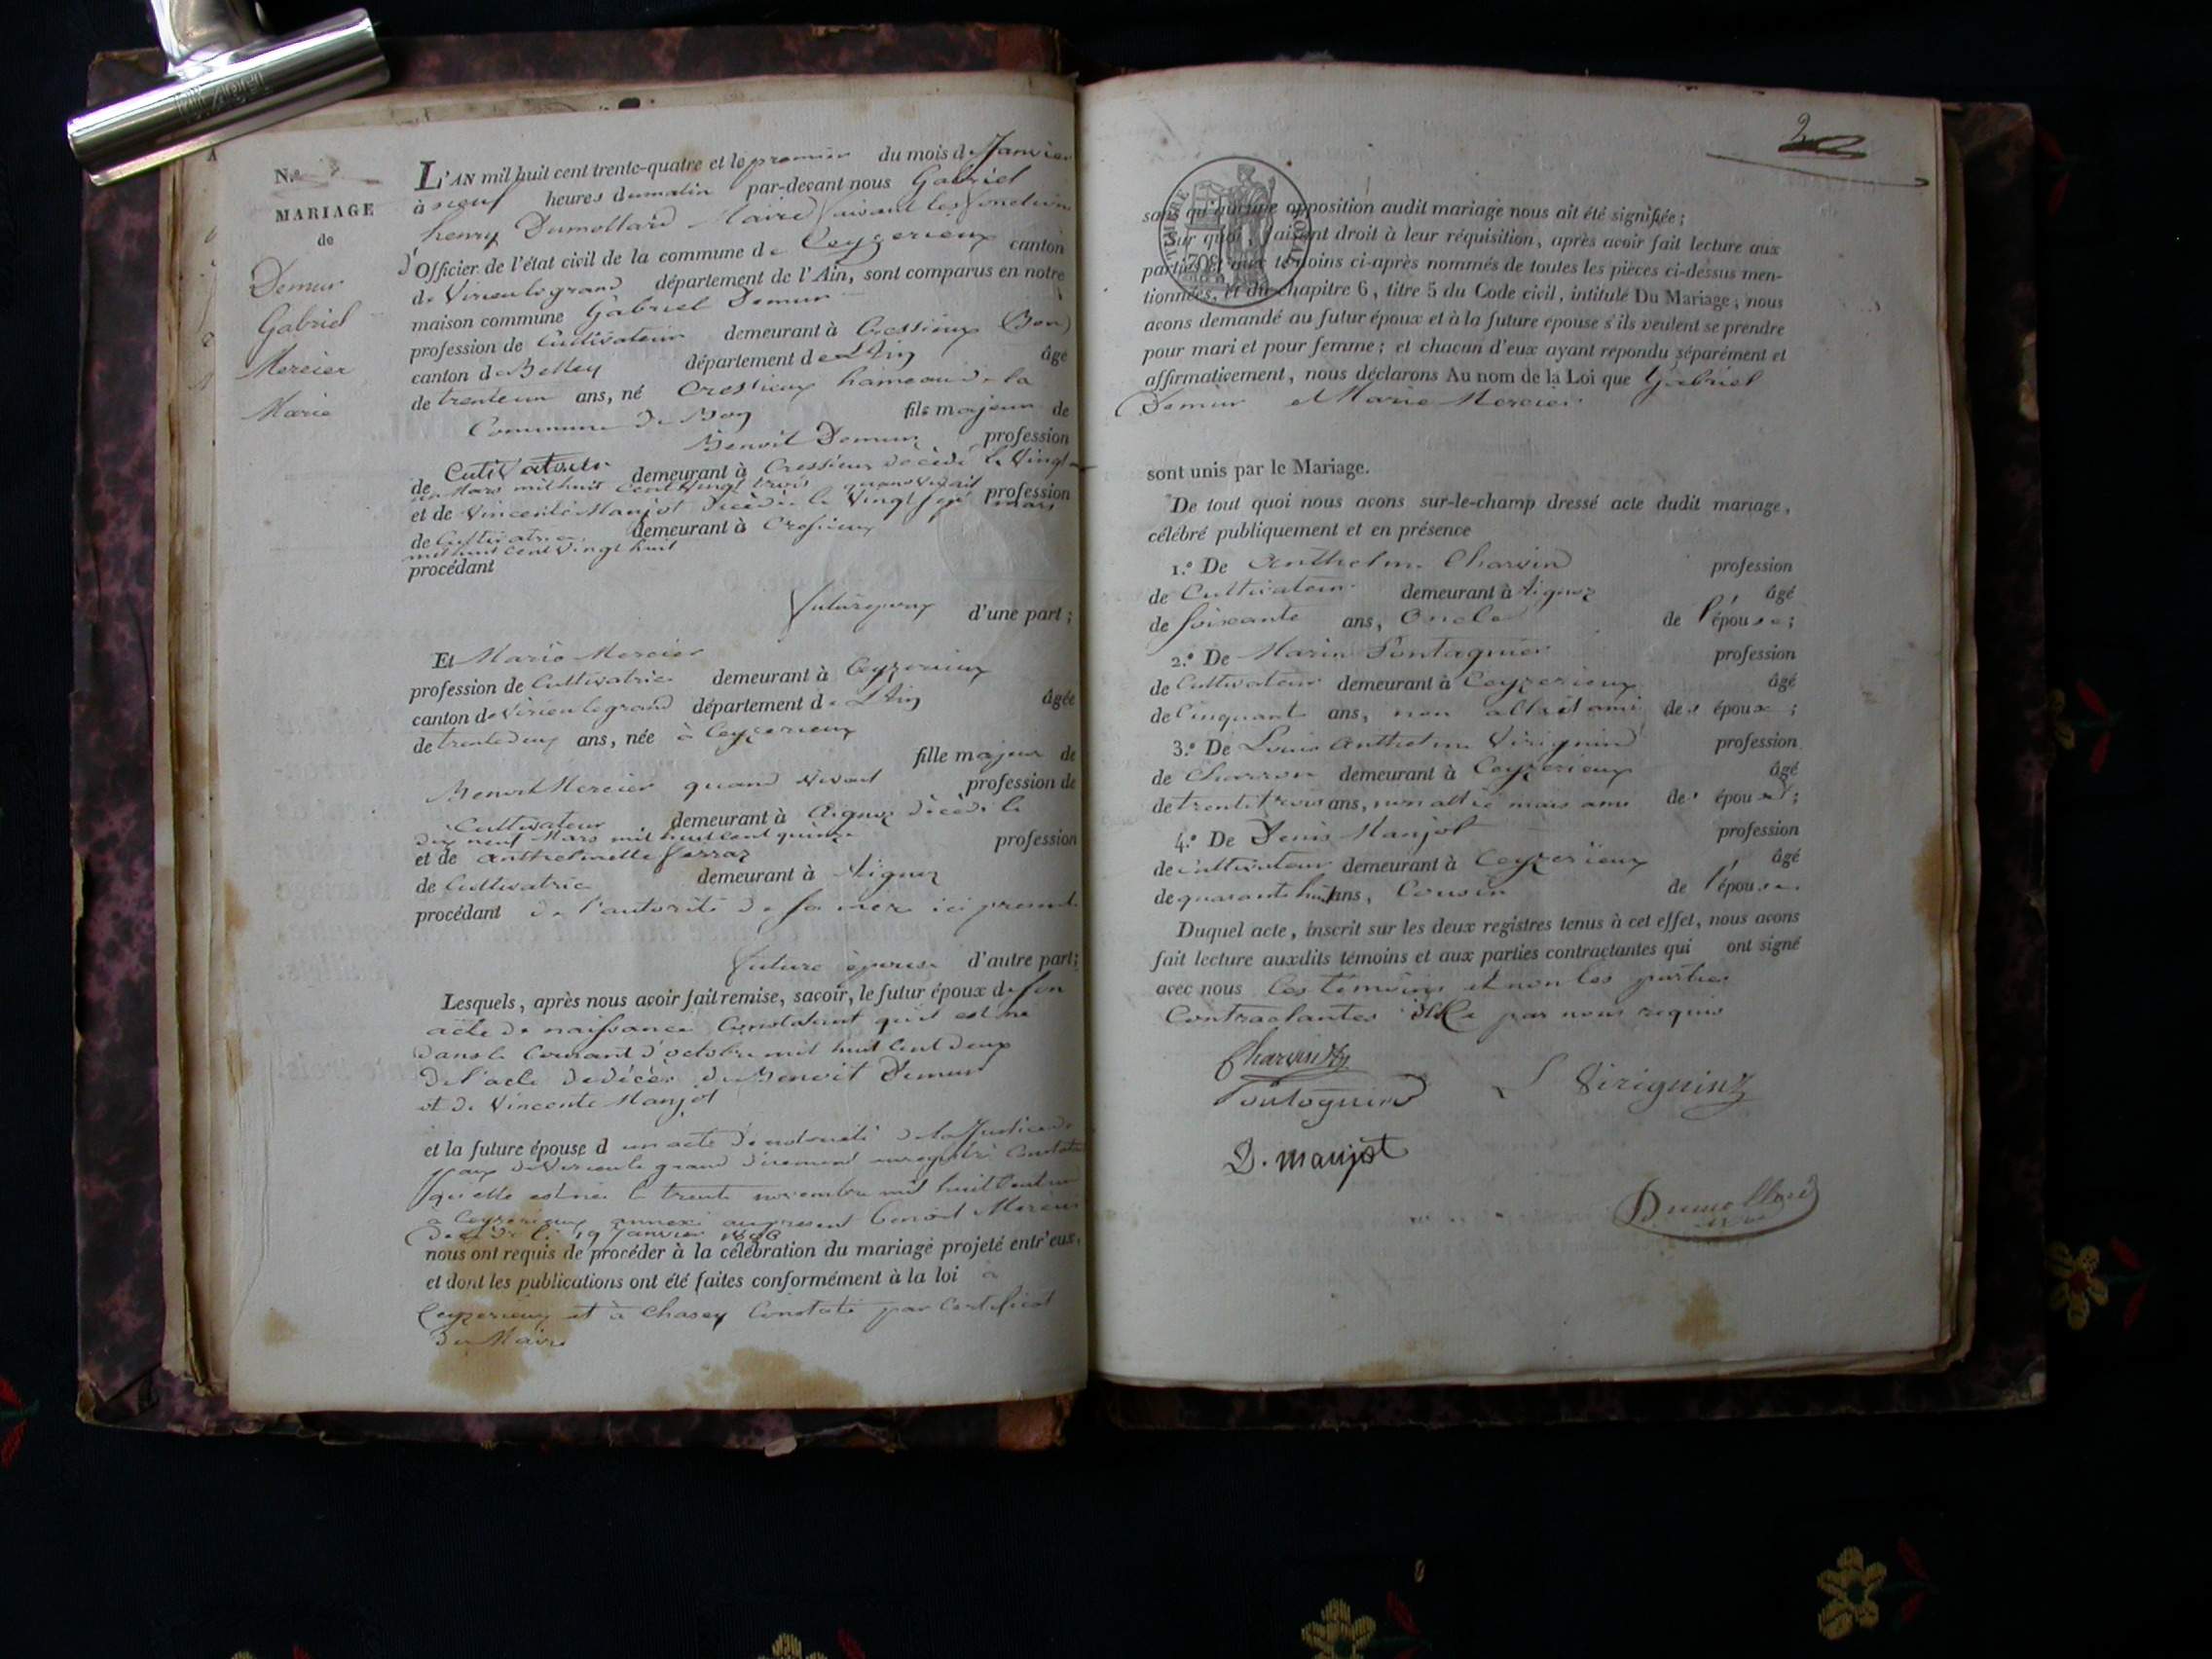 N.º
MARIAGE
de
Demur
Gabriel
Mercier
Marie
L'AN mil huit cent trente-quatre et le premier du mois d Janvier
à neuf heures du matin par-devant nous Gabriel
henry Dumollard Maire faisant les fonctions
d'Officier de l'état civil de la commune de Ceyzerieux canton
de Virieulegrand département de l'Ain, sont comparus en notre
maison commune Gabriel Demur
profession de Cultivateur demeurant à Cressieux (Bon)
canton de Belley département de L'Ain âgé
de trente un ans, né Cressieux hameau de la
Commune de Bon fils majeur de
Benoit Demur profession
de Cultivateur demeurant à Cressieux décédé le Vingt
un Mars mil huit cent vingt trois quand vivait
et de Vincente Manjot décédée le Vingt sept mars profession
de Cultivatrice demeurant à Cressieux
mil huit cent vingt huit
procédant
futur epoux d'une part ;
Et Marie Mercier
profession de Cultivatrice demeurant à Ceyzerieux
canton de Virieulegrand département de L'Ain âgée
de trente deux ans, née à Ceyzerieux
fille majeure de
Benoit Mercier quand vivait profession de
Cultivateur demeurant à Aignoz décédé le
dix neuf Mars mil huit cent quinze
et de anthelmette Ferraz profession
de Cultivatrice demeurant à Aignoz
procédant de l'autorité de sa mère ici présente
future épouse d'autre part ;
Lesquels, après nous avoir fait remise, savoir, le futur époux de son
acte de naissance Constatant qu'il est né
dans le Courant d'octobre mil huit cent deux
de l'acte de décès de Benoit Demur
et de Vincente Manjot
et la future épouse d un acte de notoriété de la Justice de
paix de Virieu le grand dûement enregistré Constatant
qu'elle est née le trente novembre mil huit Cent un
à Ceyzerieux annexé au présent benoit Mercier
19 Janvier
nous ont requis de procéder à la célébration du mariage projeté entr'eux,
et dont les publications ont été faites conformément à la loi à
Ceyzerieux et à Chasey Constaté par Certificat
du Maire
2
TIMBRE ROYAL
sans qu'aucune opposition audit mariage nous ait été signifiée ;
Sur quoi, faisant droit à leur réquisition, après avoir fait lecture aux
parties et aux témoins ci-après nommés de toutes les pièces ci-dessus men-
tionnées, et du chapitre 6, titre 5 du Code civil, intitulé Du Mariage ; nous
avons demandé au futur époux et à la future épouse s'ils veulent se prendre
pour mari et pour femme ; et chacun d'eux ayant répondu séparément et
affirmativement, nous déclarons Au nom de la Loi que Gabriel
Demur et Marie Mercier
sont unis par le Mariage.
De tout quoi nous avons sur-le-champ dressé acte dudit mariage,
célébré publiquement et en présence
1.º De Anthelme Charvin profession
de Cultivateur demeurant à Aignoz âgé
de soixante ans, Oncle de l'épouse ;
2.º De Marin Pontagnier profession
de Cultivateur demeurant à Ceyzerieux âgé
de Cinquante ans, non allié et ami des époux ;
3.º De Louis Anthelme Virignin profession
de Charron demeurant à Ceyzerieux âgé
de trente trois ans, non allié mais ami des époux ;
4.º De Denis Manjot profession
de Cultivateur demeurant à Ceyzerieux âgé
de quarante huit ans, Cousin de l'épouse.
Duquel acte, inscrit sur les deux registres tenus à cet effet, nous avons
fait lecture auxdits témoins et aux parties contractantes qui ont signé
avec nous les témoins et non les parties
Contractantes par nous requis
Charvin
Pontagnier
L Virignin
D. manjot
Dumollard